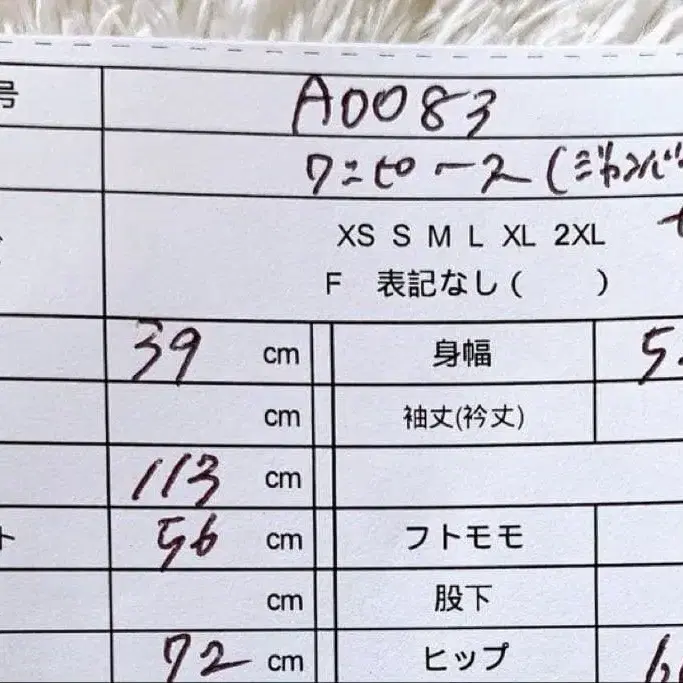 号 A0083
ワンピース(ジャンパ
XS S M L XL 2XL
F 表記なし( )
39 cm 身幅 5
cm 袖丈(裄丈)
113 cm
ト 56 cm フトモモ
cm 股下
72 cm ヒップ 6